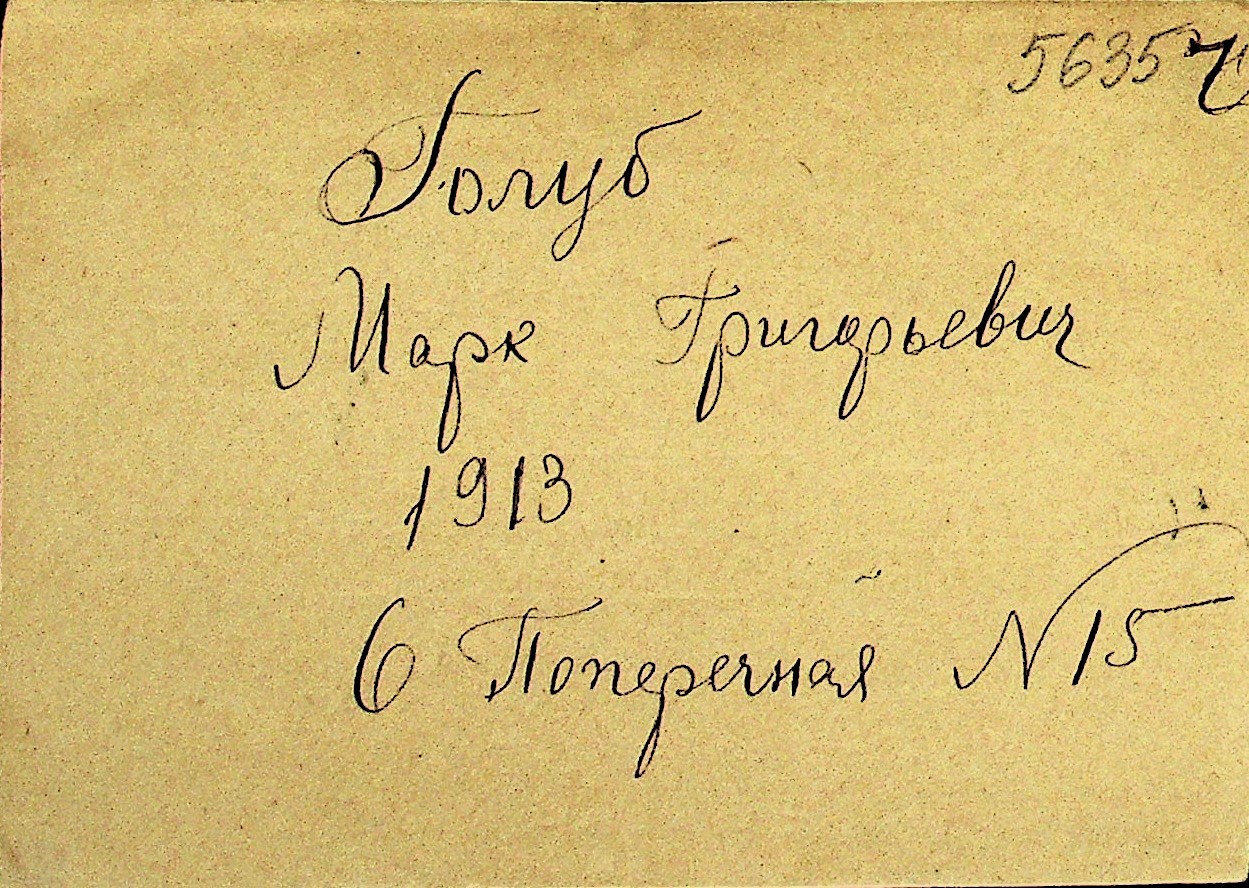 5635
Голуб
Марк Григорьевич
1913
6 Поперечная N 15